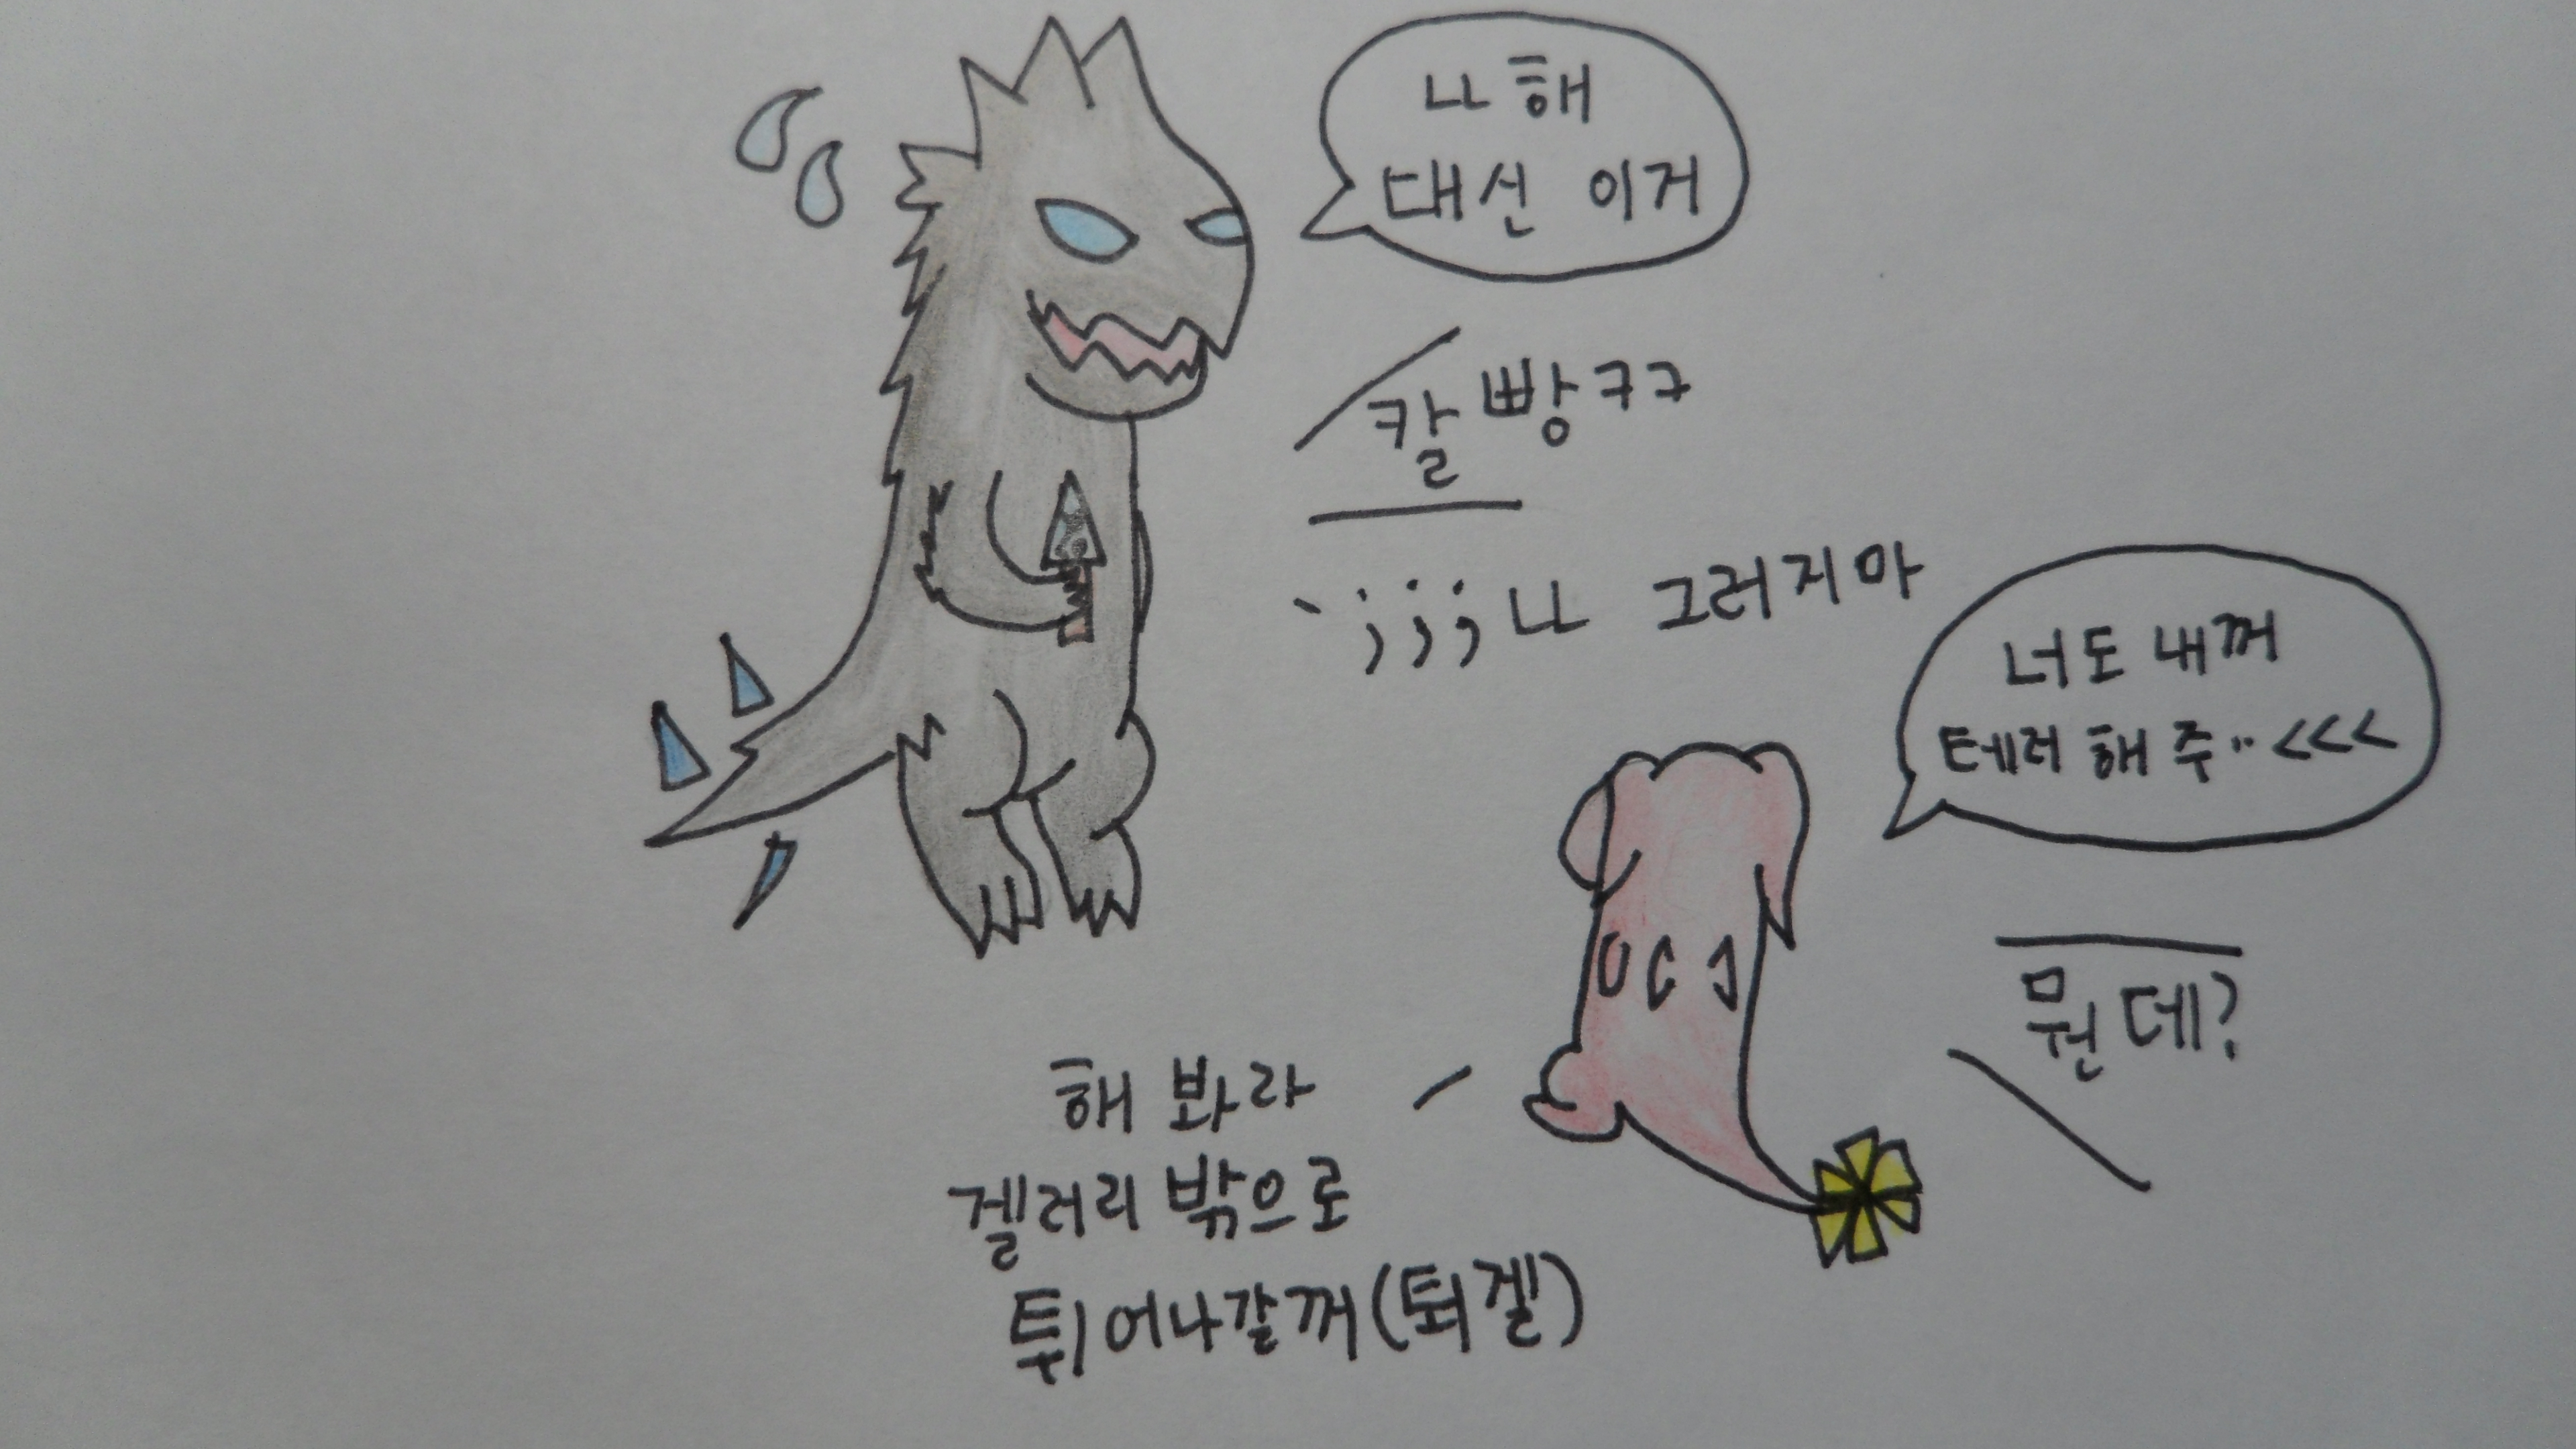 ㄴㄴ해
대신 이거
칼빵ㅋㅋ
;;;; ㄴㄴ 그러지마
너도 내꺼
테러해주..<<<
뭔데?
해봐라
겔러리 밖으로
튀어나갈꺼(퇴겔)